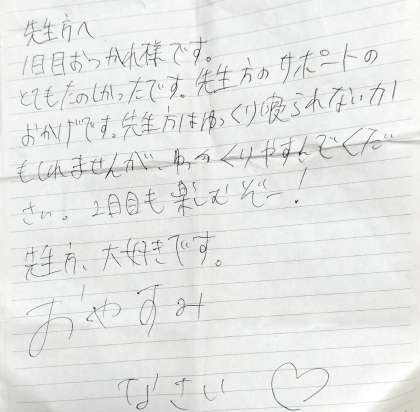 先生方へ
1日目おつかれ様です。
とてもたのしかったです。先生方のサポートの
おかげです。先生方はゆっくり疲られないカ
もしれませんが、ゆっくりやすんでくだ
さい。2日目も楽しむぞー!
先生方、大好きです。
おやすみ
なさい♡